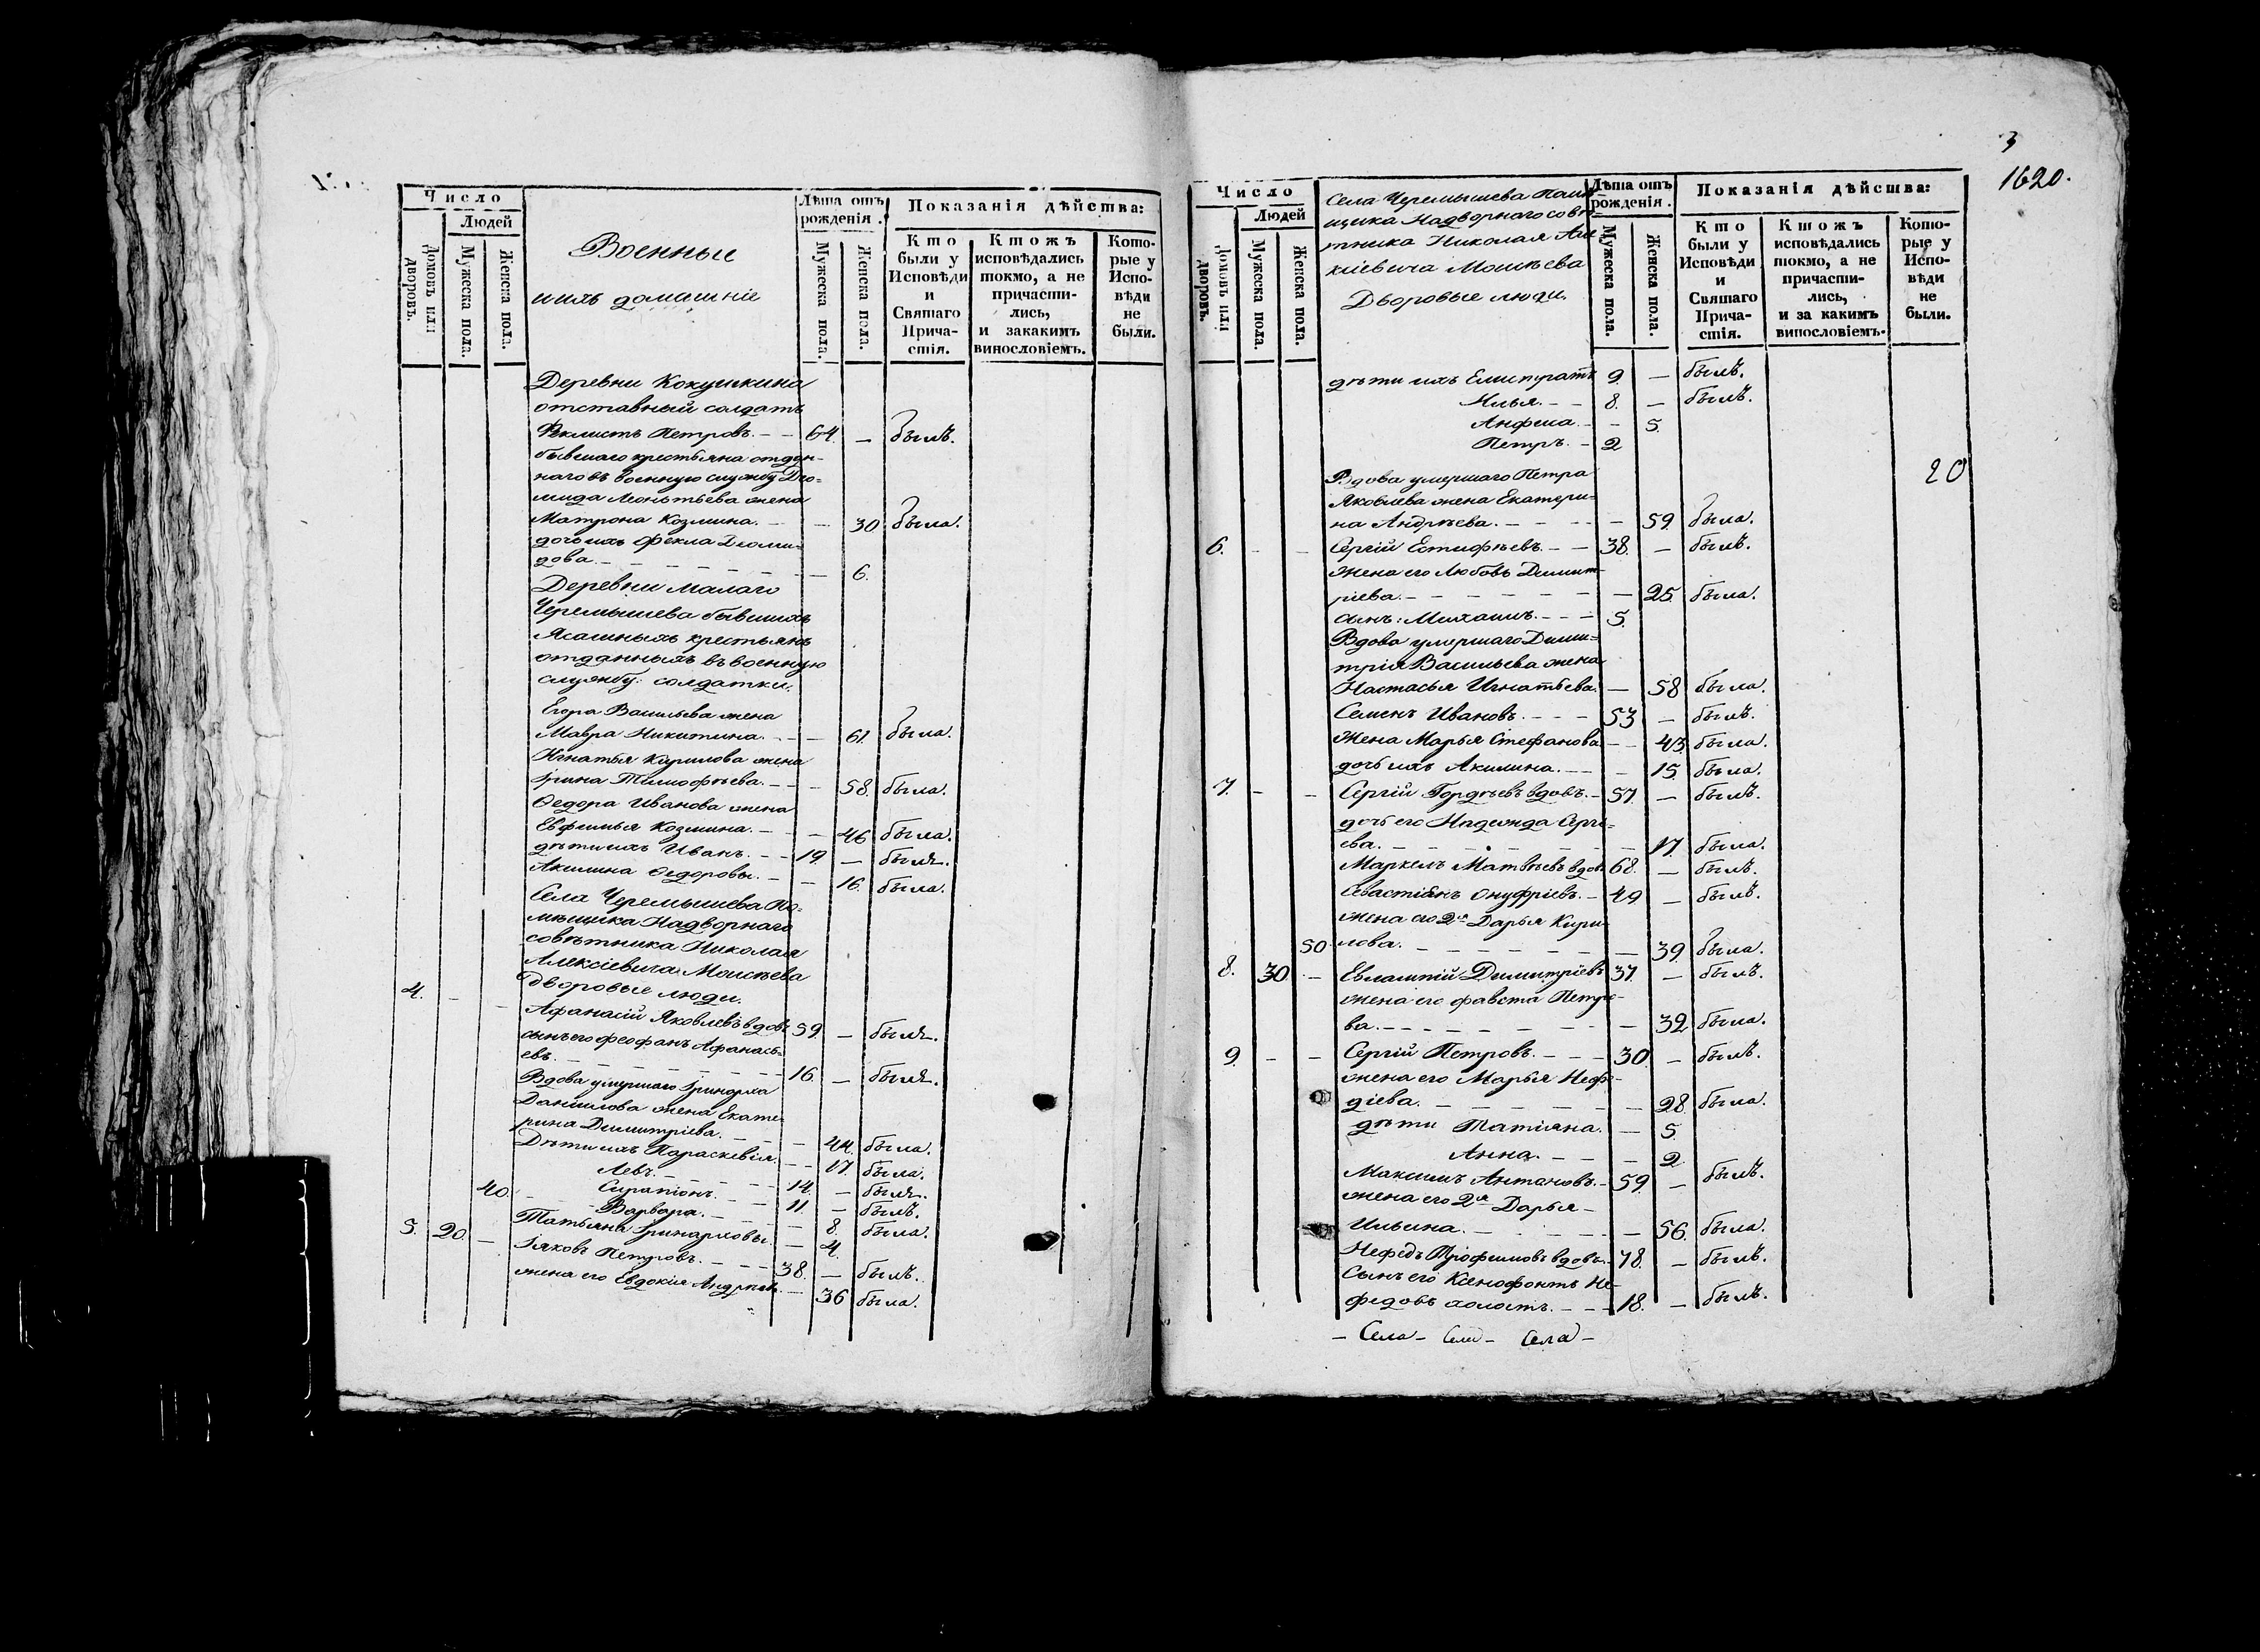 Число
Людей
Домовъ или дворовъ.
Мужеска пола.
Женска пола.
Военные
и ихъ домашніе
Лѣта отъ рожденія.
Мужеска пола.
Женска пола.
Показанія дѣйства:
Кто были у Исповѣди и Святаго Причастія.
Ктожъ исповѣдались токмо, а не причастились, и закакимъ винословіемъ.
Которые у Исповѣди не были.
Деревни Кокушкина
отставный солдатъ
Феклистъ Петровъ. – – 64. – былъ.
бывшаго крестьяна отдан-
наго въ военную службу Дио-
мида Леонтьева жена
Матрона Козмина. – – 30. была.
дочь ихъ Фекла Диоми-
дова. – – 6.
Деревни малаго
Черемышева бывшихъ
Ясашныхъ крестьянъ
отданныхъ въ военную
службу: солдатки.
Егора Васильева жена
Мавра Никитина. – – 61. была.
Игнатья Кирилова жена
Ірина Тимофѣева. – – 58. была.
Ѳедора Иванова жена
Евфимья Козмина. – – 46 была.
дѣти ихъ Иванъ. – – 19. – былъ.
Акилина Ѳедоровы. – – 16. была.
Села Черемышева По-
мѣщика Надворнаго
совѣтника Николая
Алексіевича Моисѣева
Дворовые люди.
4. – – Афанасій Яковлевъ вдовъ 59. – былъ.
сынъ его Феофанъ Афанась-
евъ. – – 16. – былъ.
Вдова умершаго Іринарха
Даниилова жена Екате-
рина Димитріева. – – 44. была.
Дѣти ихъ Параскевія. – – 17. была.
Левъ. – – 14. – былъ.
40. Серапіонъ. – – 11. – былъ.
Варвара. – – 8. была.
Татьяна Іринарховы. – 4.
5. 20. – Іяковъ Петровъ. – – 38. – былъ.
жена его Евдокія Андреев. – 36 была.
3
1620.
Число
Людей
Домовъ или дворовъ.
Мужеска пола.
Женска пола.
Села Черемышева Помѣ-
щика Надворнаго совѣ-
тника Николая Але-
ксіевича Моисѣева
Дворовые люди.
Лѣта отъ рожденія.
Мужеска пола.
Женска пола.
Показанія дѣйства:
Кто были у Исповѣди и Святаго Причастія.
Ктожъ исповѣдались токмо, а не причастились, и за какимъ винословіемъ.
Которые у Исповѣди не были.
дѣти ихъ Епистратъ 9. – былъ.
Илья. – – 8. – былъ.
Анфиса. – – 5.
Петръ. – 2
20
Вдова умершаго Петра
Яковлева жена Екатери-
на Андрѣева. – – – 59. была.
6. – – Сергій Естифѣевъ. – – 38. – былъ.
жена его Любовь Димит-
ріева. – – 25. была.
сынъ: Михаилъ. – – – 5.
Вдова умершаго Дими-
трія Васильева жена
Настасья Игнатьева. – 58 была.
Семенъ Ивановъ. – – – 53 – былъ.
Жена Марья Стефанова – – 43. была.
дочь ихъ Акилина. – – – 15. была.
7. – – Сергій Гордѣевъ вдовъ. – 57. – былъ.
дочь его Надежда Серге-
ева. – – 17. была.
Маркелъ Матвѣевъ вдов. 68. – былъ.
Севастіанъ Онуфріевъ. – 49. – былъ.
жена его 2я Дарья Кири-
50. лова. – – 39. была.
8. 30. – Евлампій Димитріевъ 37. – былъ.
жена его Фавста Петро-
ва. – – 32 была.
9. – – Сергій Петровъ. – – – 30. – былъ.
жена его Марья Неф-
діева. – – 28. была.
дѣти Татіяна. – 5.
Анна. – – – 2
Максимъ Антоновъ. – 59. – былъ.
жена его 2я Дарья –
Ильина. – – 56. была.
Нефедъ Трофимовъ вдовъ. 78. – былъ.
Сынъ его Ксенофонтъ Не-
федовъ холостъ. – – – 18. – былъ.
– Села – Села – Села –